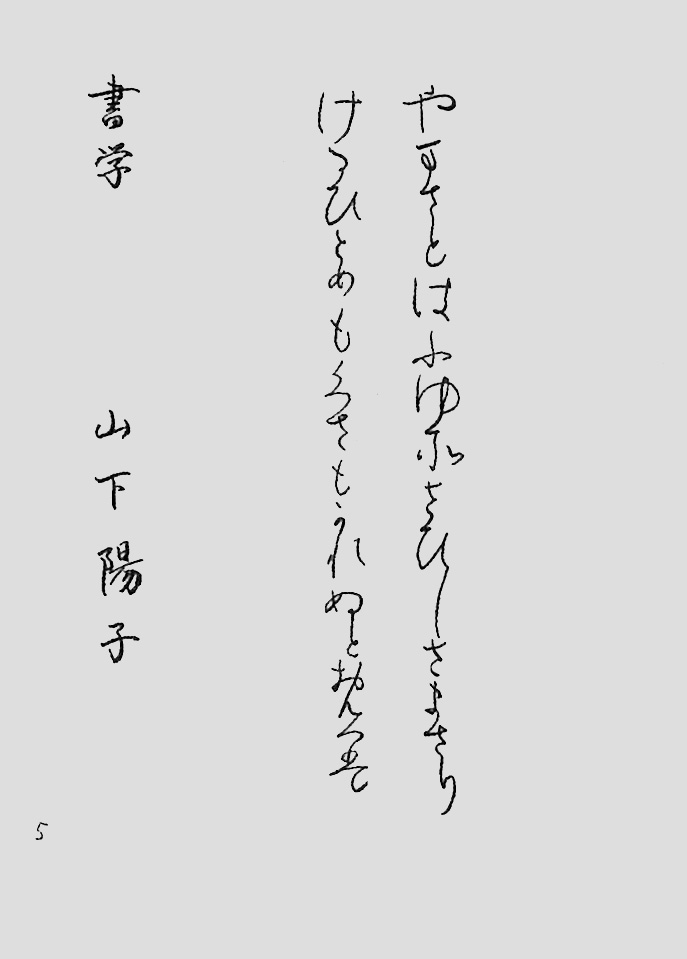 やまさとはふゆぞさひしさまさり
けるひとめもくさもかれぬとおもへは
書学 山下陽子
5